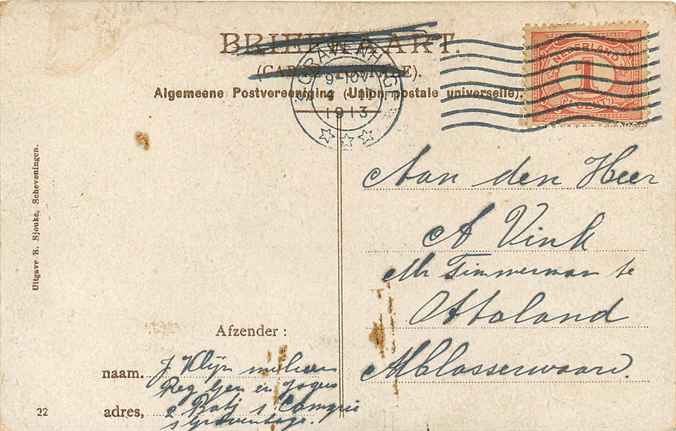 BRIEFKAART.
(CARTE POSTALE).
Algemeene Postvereeniging (Union postale universelle).
'S GRAVENHAGE
9-10V
1913
NEDERLAND
1
CENT
Aan den Heer
A Vink
Mr Timmerman te
Ottoland
Alblasserwaard.
Uitgave R. Sjouke, Scheveningen.
Afzender:
naam. J Klijn
Reg Gren en Jagers
adres, 2 Batj 1 Compie
s Gravenhage.
22